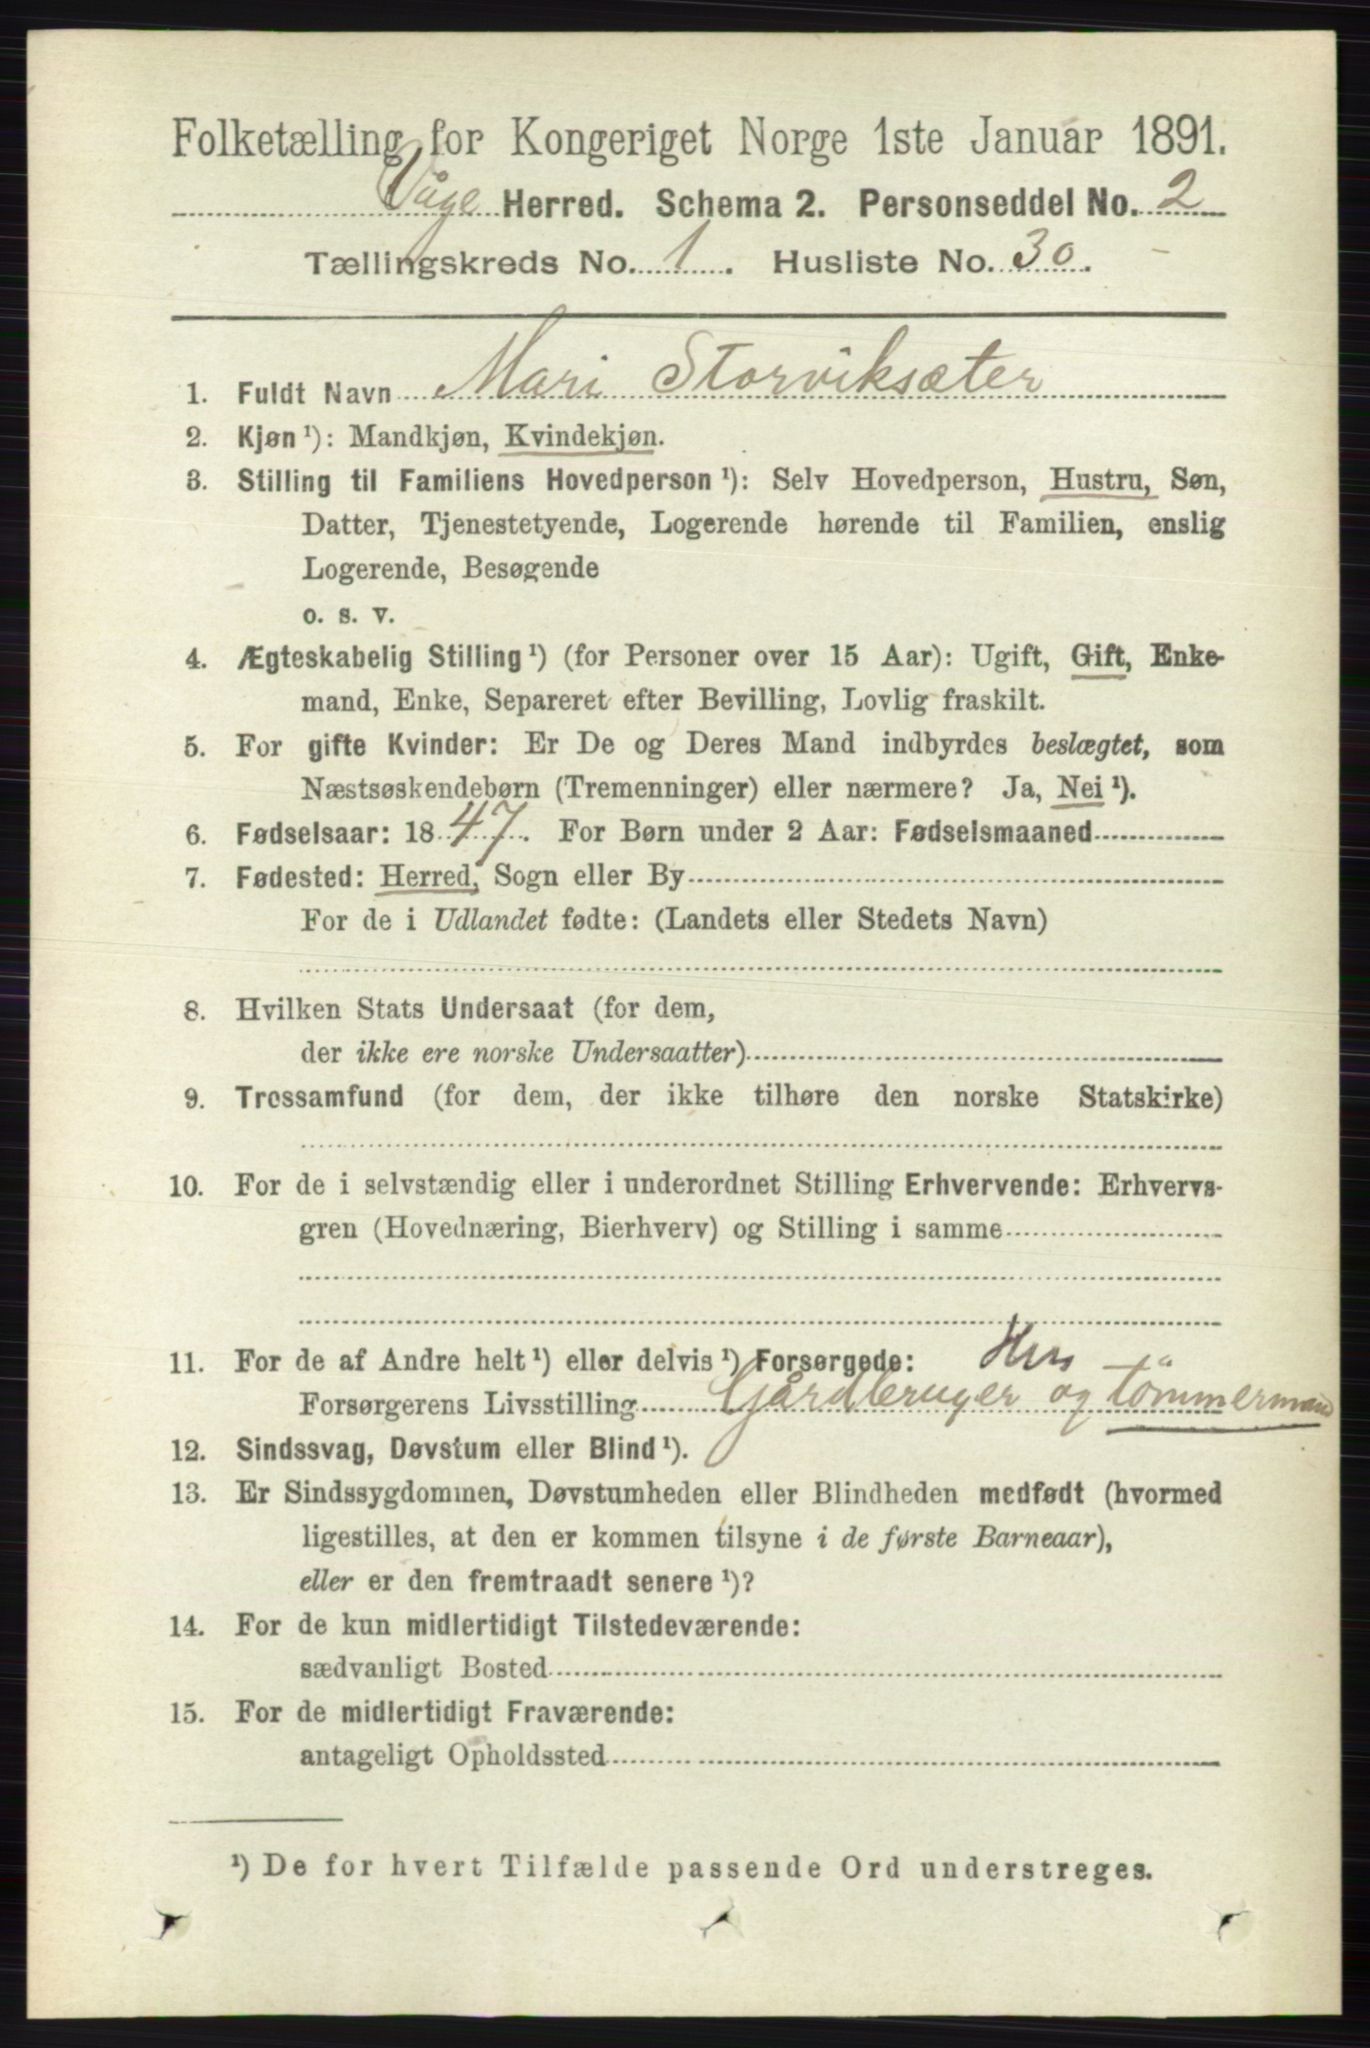 Folketælling for Kongeriget Norge 1ste Januar 1891.
Våge Herred. Schema 2. Personseddel No. 2
Tællingskreds No. 1. Husliste No. 30.
1. Fuldt Navn Mari Storviksæter
2. Kjøn ¹): Mandkjøn, Kvindekjøn.
3. Stilling til Familiens Hovedperson ¹): Selv Hovedperson, Hustru, Søn,
Datter, Tjenestetyende, Logerende hørende til Familien, enslig
Logerende, Besøgende
o. s. v.
4. Ægteskabelig Stilling ¹) (for Personer over 15 Aar): Ugift, Gift, Enke-
mand, Enke, Separeret efter Bevilling, Lovlig fraskilt.
5. For gifte Kvinder: Er De og Deres Mand indbyrdes beslægtet, som
Næstsøskendebørn (Tremenninger) eller nærmere? Ja, Nei ¹).
6. Fødselsaar: 1847. For Børn under 2 Aar: Fødselsmaaned
7. Fødested: Herred, Sogn eller By
For de i Udlandet fødte: (Landets eller Stedets Navn)
8. Hvilken Stats Undersaat (for dem,
der ikke ere norske Undersaatter)
9. Trossamfund (for dem, der ikke tilhøre den norske Statskirke)
10. For de i selvstændig eller i underordnet Stilling Erhvervende: Erhvervs-
gren (Hovednæring, Bierhverv) og Stilling i samme
11. For de af Andre helt ¹) eller delvis ¹) Forsørgede:
Forsørgerens Livsstilling Gårdbruger og tömmermand
12. Sindssvag, Døvstum eller Blind ¹).
13. Er Sindssygdommen, Døvstumheden eller Blindheden medfødt (hvormed
ligestilles, at den er kommen tilsyne i de første Barneaar),
eller er den fremtraadt senere ¹)?
14. For de kun midlertidigt Tilstedeværende:
sædvanligt Bosted
15. For de midlertidigt Fraværende:
antageligt Opholdssted
¹) De for hvert Tilfælde passende Ord understreges.